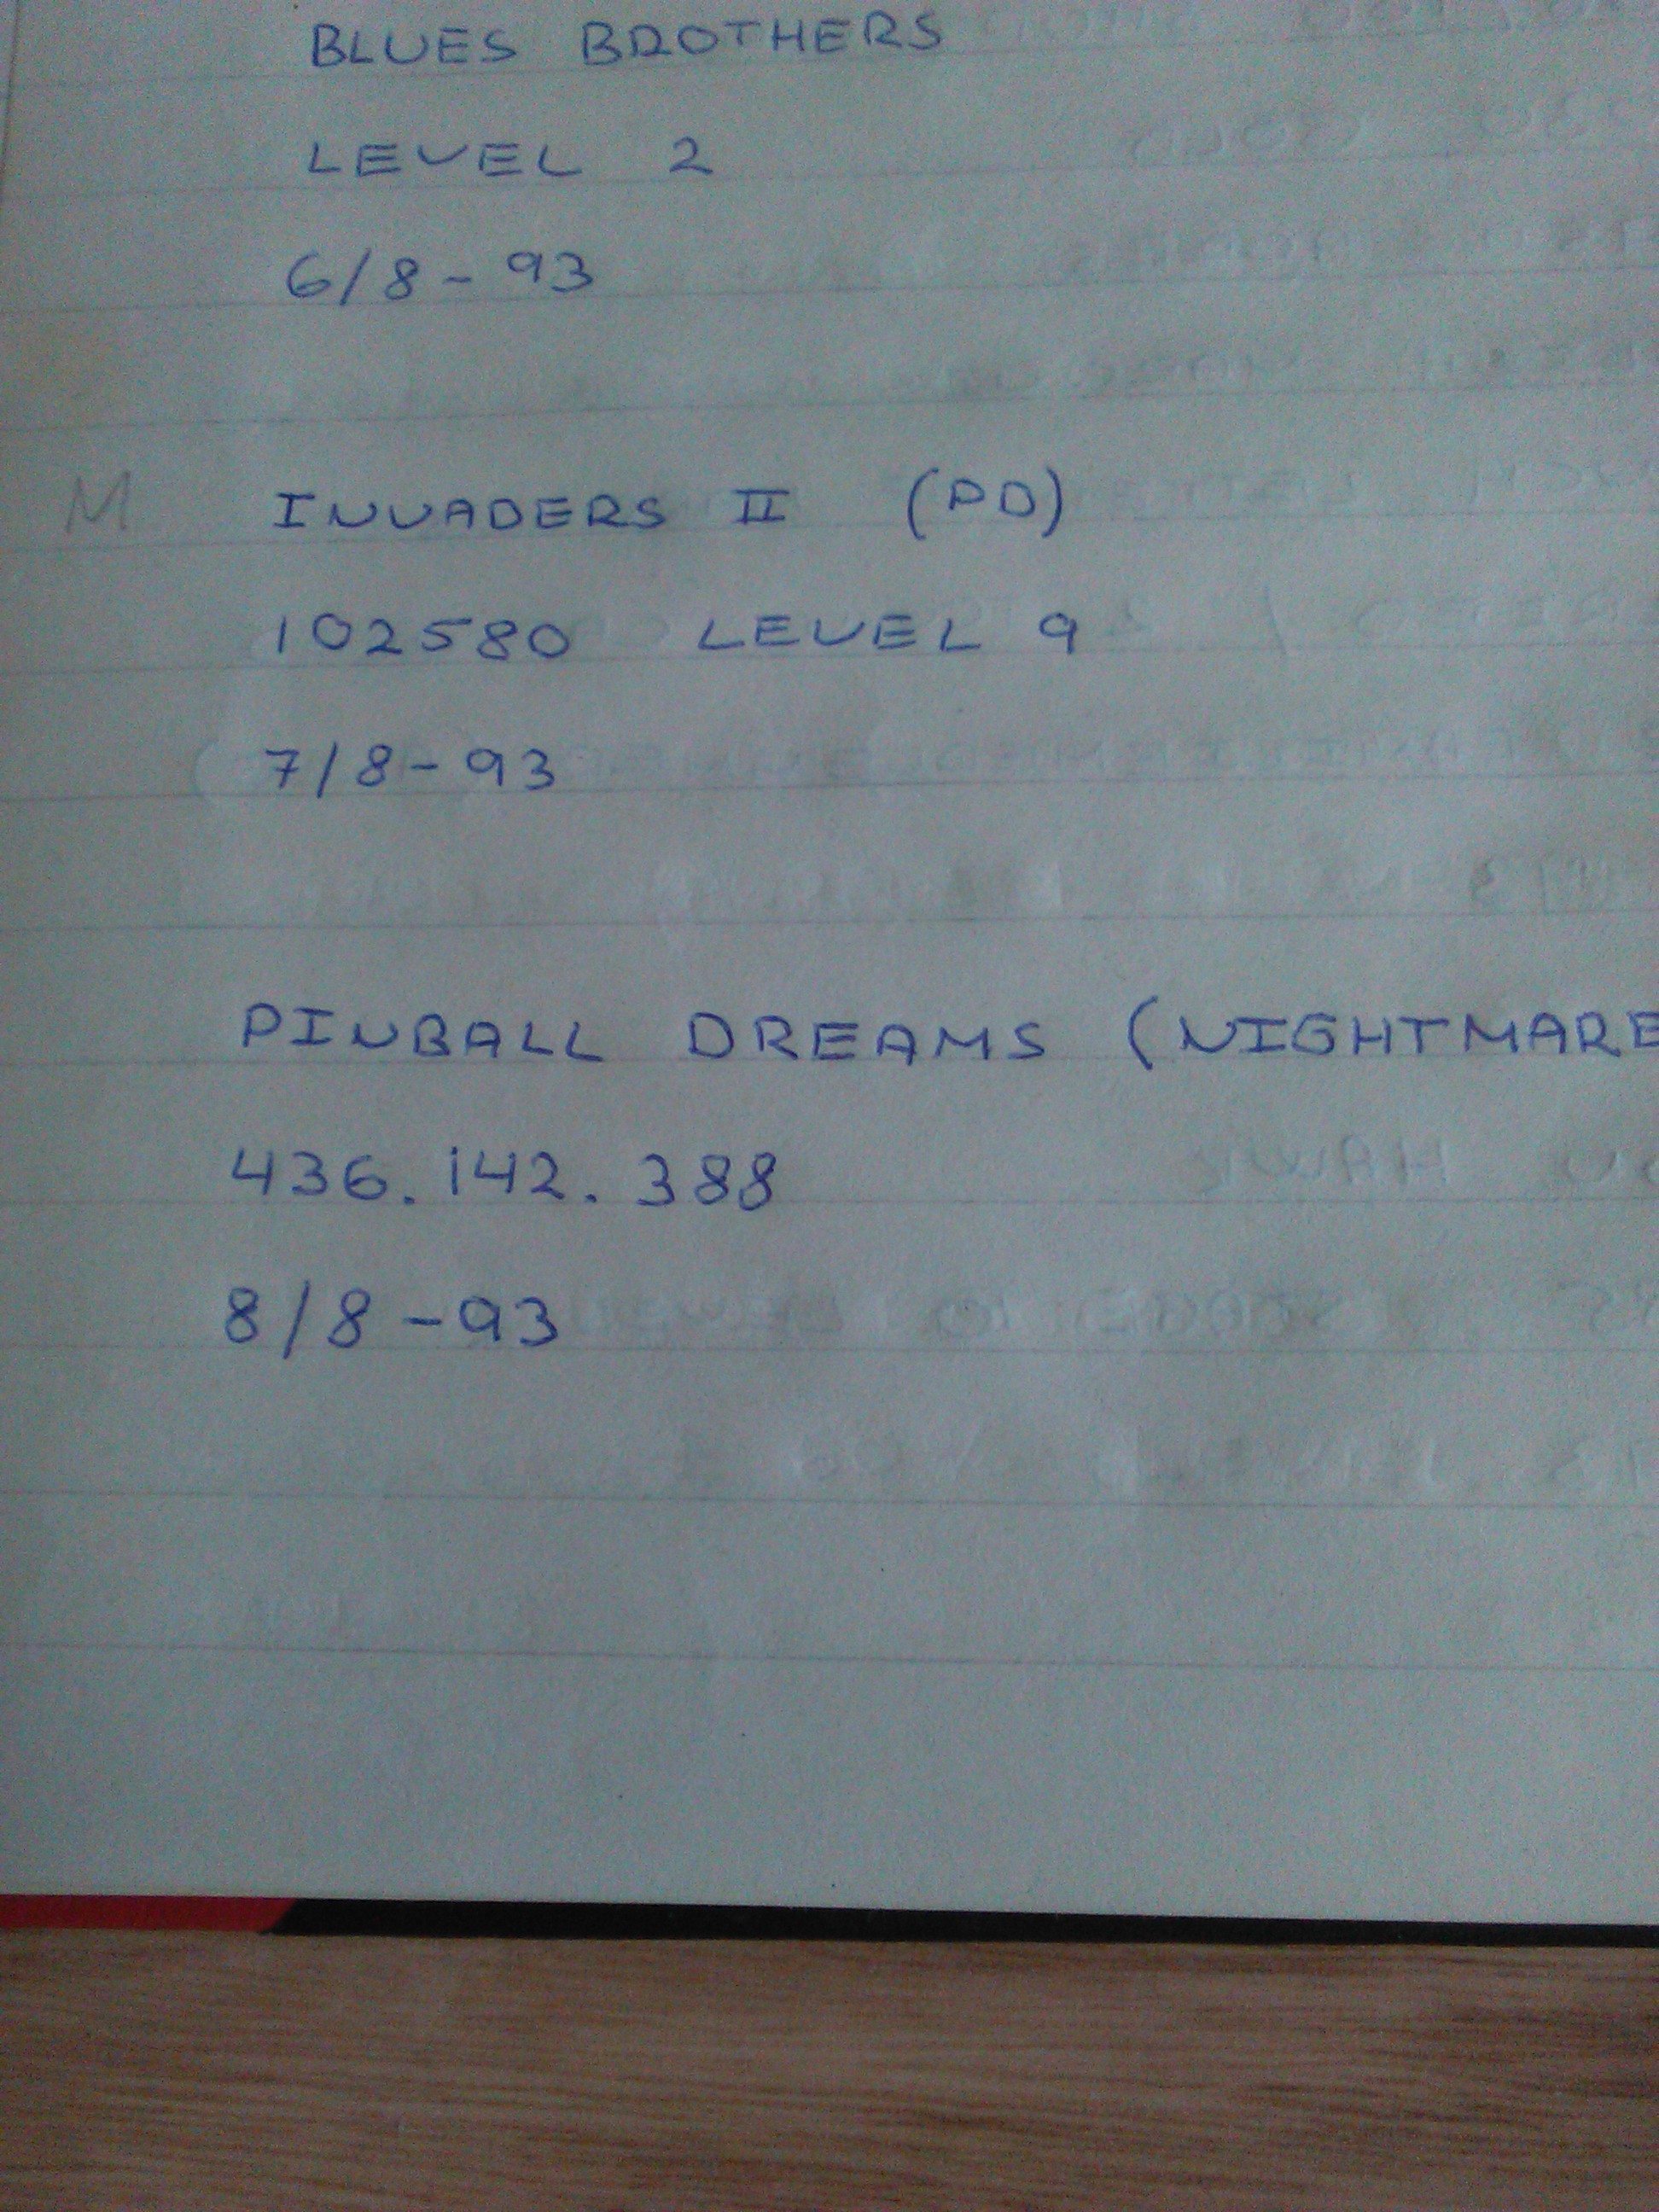 BLUES BROTHERS
LEVEL 2
6/8 - 93
M INVADERS II (PD)
102580 LEVEL 9
7/8 - 93
PINBALL DREAMS (NIGHTMARE
436.142.388
8/8 - 93